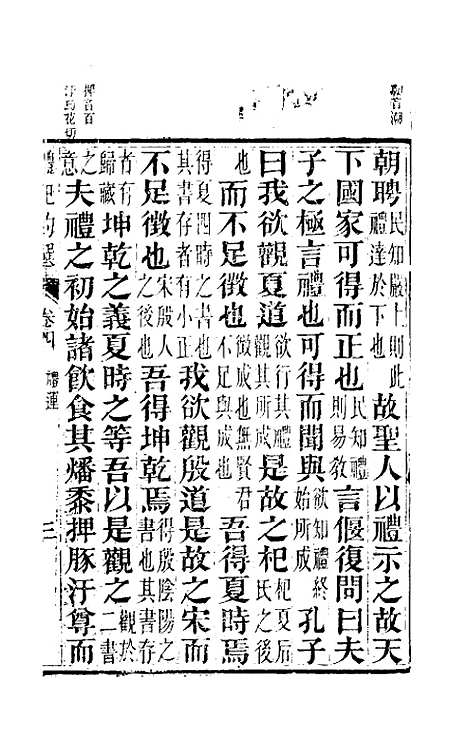 朝聘民知嚴上則此禮達於下也故聖人以禮示之故天
下國家可得而正也民知禮則易教言偃復問曰夫
子之極言禮也可得而聞與欲知禮終始所成孔子
曰我欲觀夏道欲行其禮觀其所成是故之杞杞夏后氏之後
也而不足徵也徵成也無賢君不足與成也吾得夏時焉
得夏四時之書也其書存者有小正我欲觀殷道是故之宋而
不足徵也宋殷人之後也吾得坤乾焉得殷陰陽之書也其書存
者有歸藏坤乾之義夏時之等吾以是觀之觀於二書
之意夫禮之初始諸飲食其燔黍捭豚汙尊而
卷四 禮運 三
捭音百